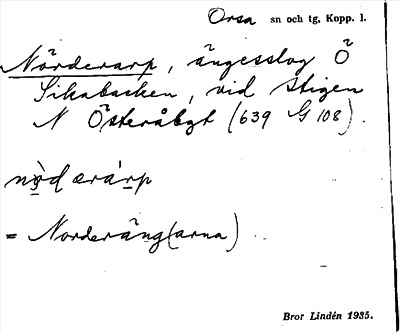 Orsa sn och tg, Kopp. l.
Nörderarp, ängesslog Ö
Sikabacken, vid stigen
N Österåbygt (639 G 108).
nò̤d ærárp
= Norderäng(arna)
Bror Lindén 1935.